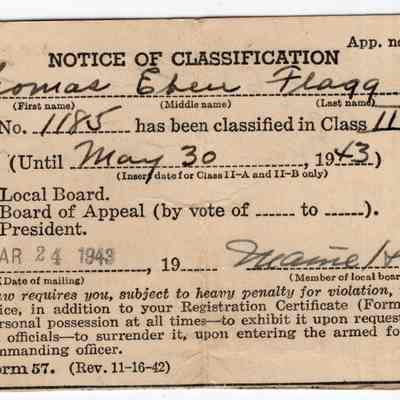 App. no
NOTICE OF CLASSIFICATION
homas Eben Flagg
(First name) (Middle name) (Last name)
No. 1185 has been classified in Class II
(Until May 30, 1943)
(Insert date for Class II-A and II-B only)
Local Board.
Board of Appeal (by vote of ----- to -----).
President.
AR 24 1943, 19
(Date of mailing) (Member of local boar
aw requires you, subject to heavy penalty for violation,
ice, in addition to your Registration Certificate (Form
ersonal possession at all times—to exhibit it upon request
officials—to surrender it, upon entering the armed fo
mmanding officer.
orm 57. (Rev. 11-16-42)